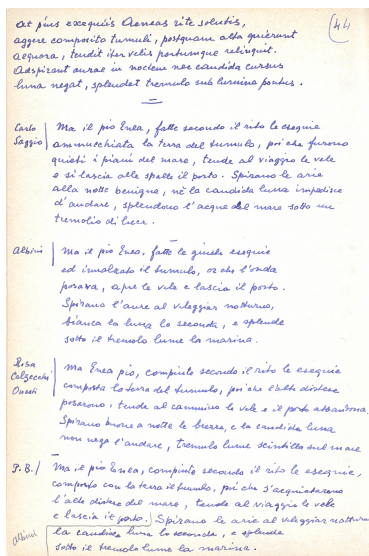 44
at pius exequiis Aeneas rite solutis,
aggere composito tumuli, postquam alta quierunt
aequora, tendit iter velis portumque relinquit.
Adspirant aurae in noctem nec candida cursus
luna negat, splendet tremulo sub lumine pontus.
Carlo Saggio
Ma il pio Enea, fatte secondo il rito le esequie
ammucchiata la terra del tumulo, poi che furono
quieti i piani del mare, tende al viaggio le vele
e si lascia alle spalle il porto. Spirano le arie
alla notte benigne, nè la candida luna impedisce
d'andare, splendono l'acque del mare sotto un
tremolio di luce.
Albini
Ma il pio Enea, fatte le giuste esequie
ed innalzato il tumulo, or che l'onda
posava, apre le vele e lascia il porto.
Spirano l'aure al veleggiar notturno,
bianca la luna lo seconda, e splende
sotto il tremolo lume la marina.
Rosa Calzecchi Onesti
Ma Enea pio, compiute secondo il rito le esequie
composta la terra del tumulo, poi che l'alte distese
posarono, tende al cammino le vele e il porto abbandona.
Spirano buone a notte le brezze, e la candida luna
non nega l'andare, tremulo lume scintilla sul mare
P.B.
Ma il pio Enea, compiute secondo il rito le esequie,
composto con la terra il tumulo, poi che s'acquietarono
l'alte distese del mare, tende al viaggio le vele
e lascia il porto. Spirano le arie al viaggiar notturno
albini
la candida luna lo seconda, e splende
sotto il tremolo lume la marina.